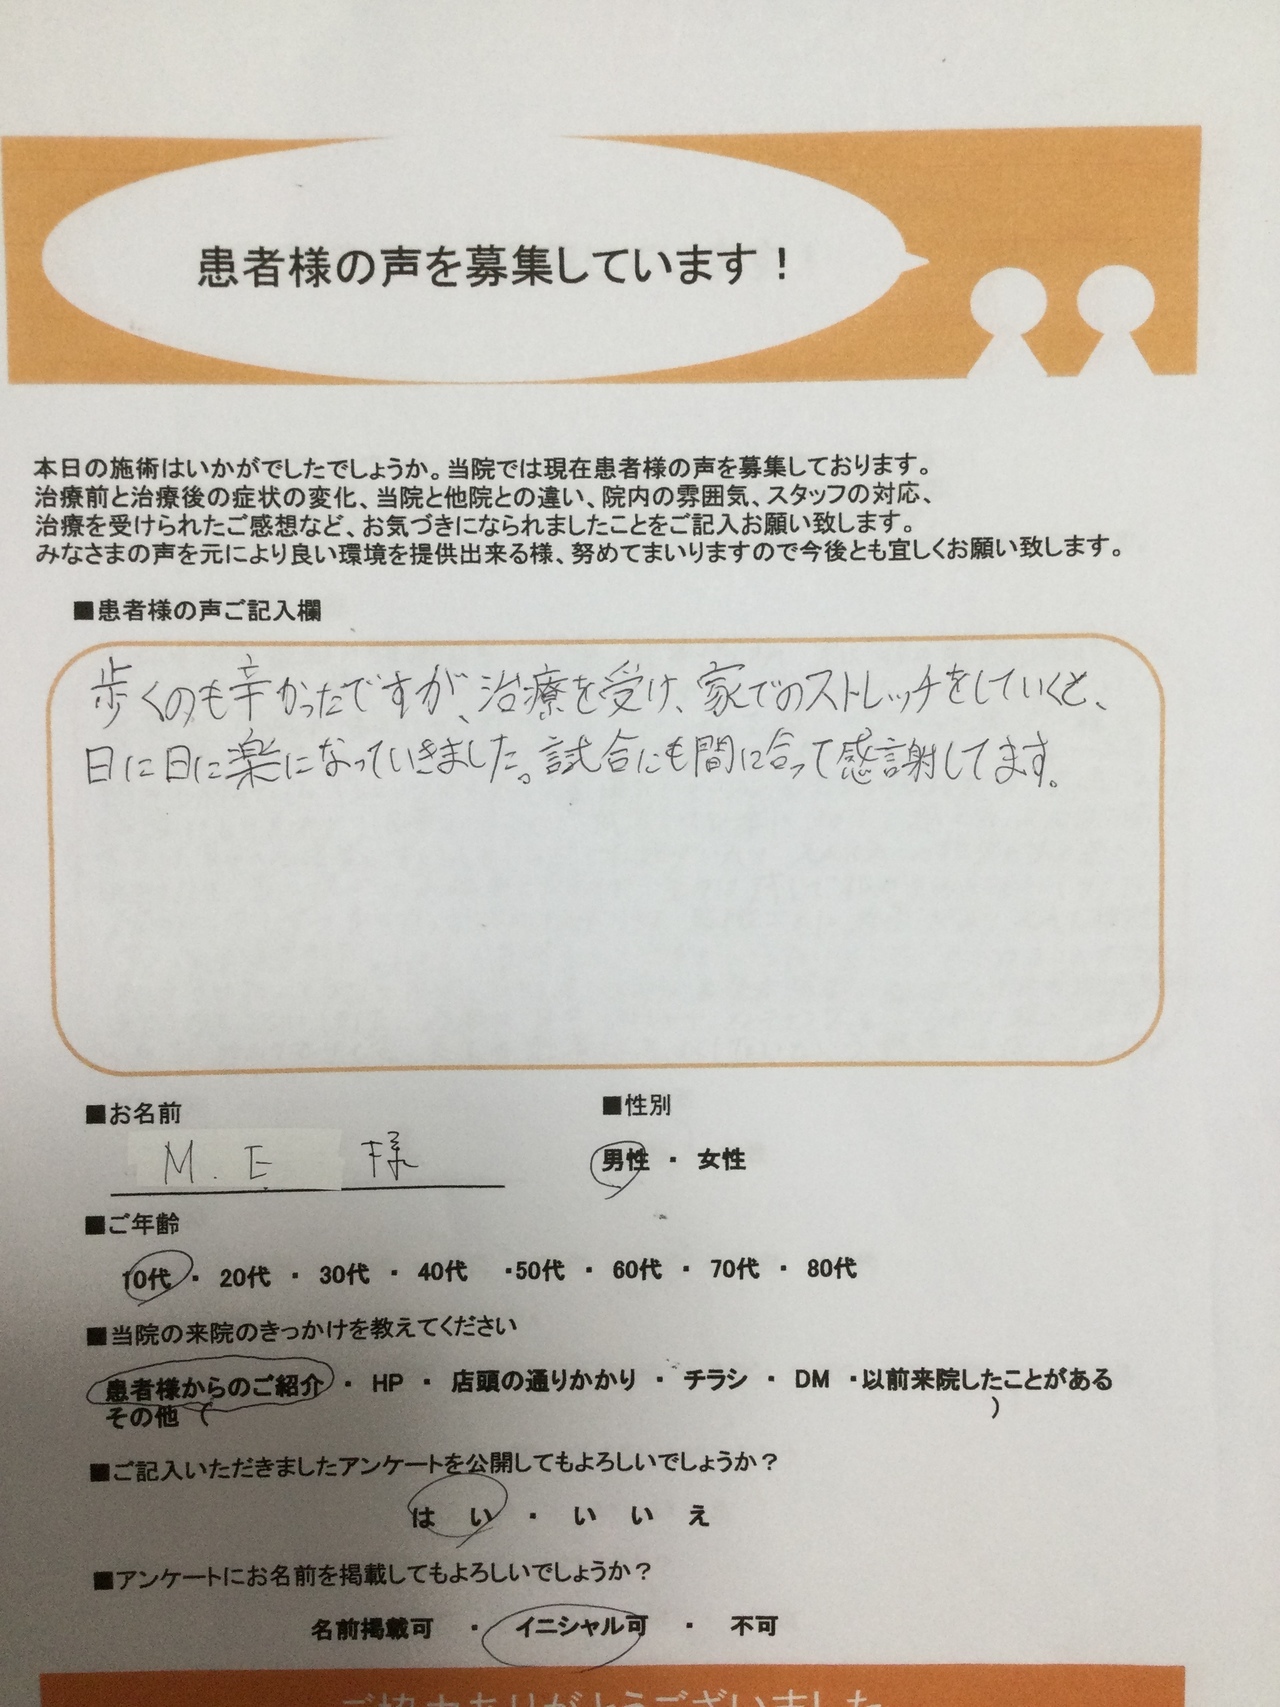 患者様の声を募集しています！
本日の施術はいかがでしたでしょうか。当院では現在患者様の声を募集しております。
治療前と治療後の症状の変化、当院と他院との違い、院内の雰囲気、スタッフの対応、
治療を受けられたご感想など、お気づきになられましたことをご記入お願い致します。
みなさまの声を元により良い環境を提供出来る様、努めてまいりますので今後とも宜しくお願い致します。
■患者様の声ご記入欄
歩くのも辛かったですが、治療を受け、家でのストレッチをしていくと、
日に日に楽になっていきました。試合にも間に合って感謝してます。
■お名前 ■性別
M.E 様 男性 ・ 女性
■ご年齢
10代 ・ 20代 ・ 30代 ・ 40代 ・50代 ・ 60代 ・ 70代 ・ 80代
■当院の来院のきっかけを教えてください
患者様からのご紹介 ・ HP ・ 店頭の通りかかり ・ チラシ ・ DM ・以前来院したことがある
その他 （ ）
■ご記入いただきましたアンケートを公開してもよろしいでしょうか？
は い ・ い い え
■アンケートにお名前を掲載してもよろしいでしょうか？
名前掲載可 ・ イニシャル可 ・ 不可
ご協力ありがとうございました